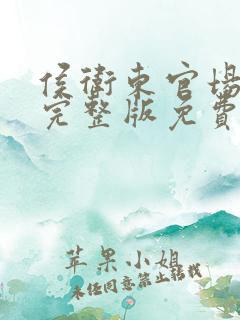 侯衛東官場
完整版免費
苹果小姐
未经同意禁止转载